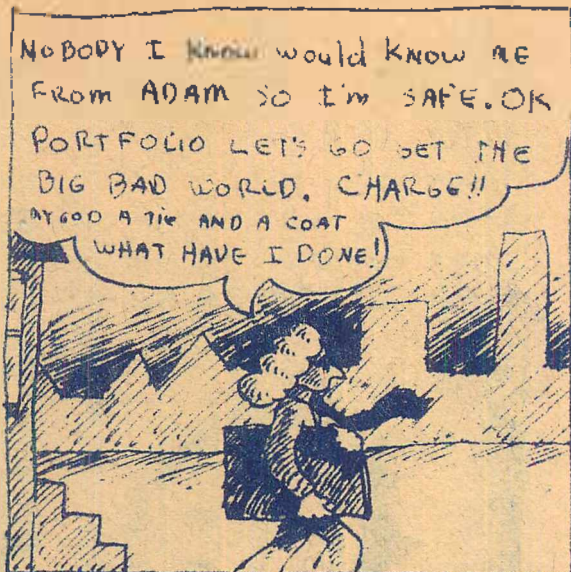 NOBODY I would KNOW ME
FROM ADAM SO I'm SAFE. OK
PORTFOLIO LET'S GO GET THE
BIG BAD WORLD. CHARGE!!
MY GOD A TIE AND A COAT
WHAT HAVE I DONE!